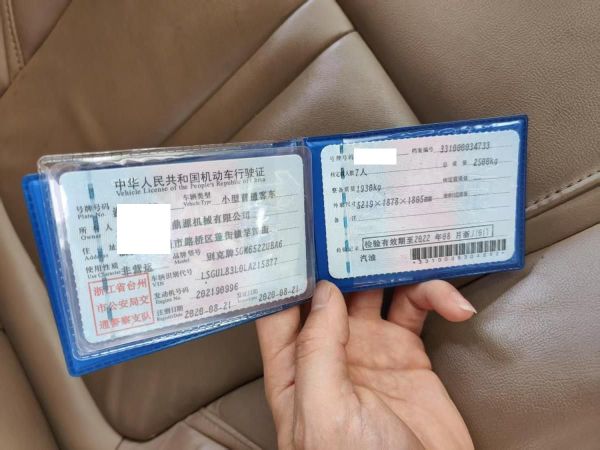 中华人民共和国机动车行驶证
Vehicle License of the People's Republic of China
号牌号码
Plate No.
车辆类型
Vehicle Type
小型普通客车
所有人
Owner
鼎源机械有限公司
住址
Address
市路桥区蓬街镇
使用性质
Use Character
非营运
品牌型号
Model
别克牌SGM6522UBA6
浙江省台州
市公安局交
通警察支队
车辆识别代号
VIN
LSGUL83L0LA215377
发动机号码
Engine No.
202190996
注册日期
Register Date
2020-08-21
发证日期
Issue Date
2020-08-21
号牌号码
档案编号 331000034733
核定载人数 7人
总质量 2500kg
整备质量 1930kg
核定载质量
外廓尺寸 5219×1878×1805mm
备注
检验记录
检验有效期至2022年08月
汽油